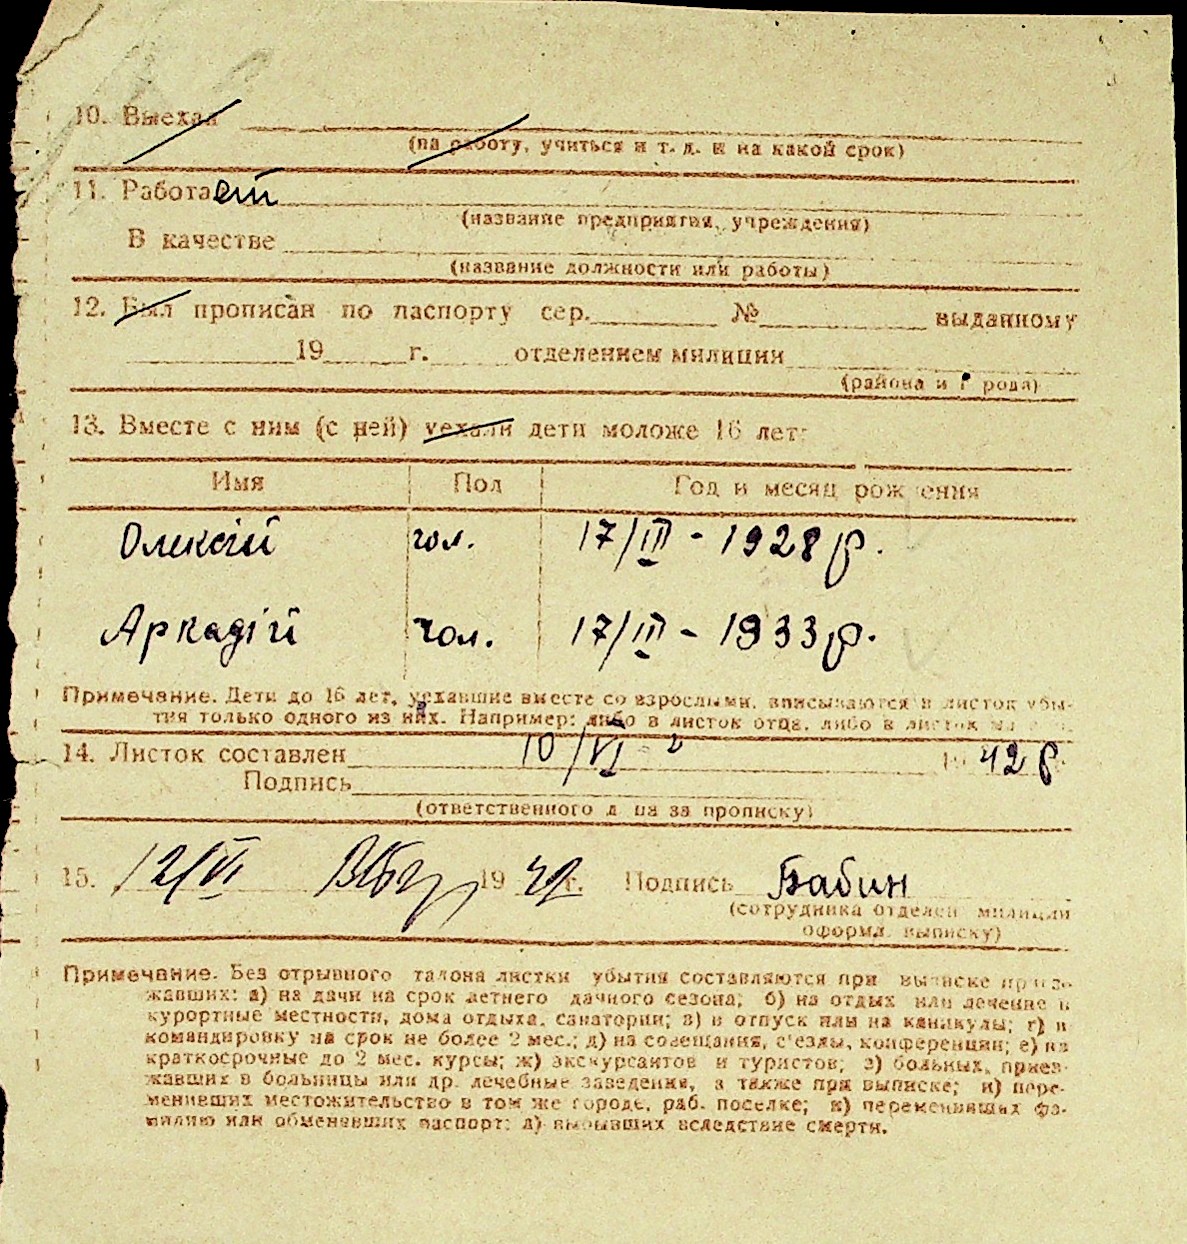 10. Выехал
(на работу, учиться и т. д. и на какой срок)
11. Работает
(название предприятия, учреждения)
В качестве
(название должности или работы)
12. Был прописан по паспорту сер. № выданному
19 г. отделением милиции
(района и города)
13. Вместе с ним (с ней) уехали дети моложе 16 лет:
Имя Пол Год и месяц рождения
Олексій чол. 17/III - 1928 р.
Аркадій чол. 17/III - 1933 р.
Примечание. Дети до 16 лет, уехавшие вместе со взрослыми, вписываются в листок убы-
тия только одного из них. Например: либо в листок отца, либо в листок
14. Листок составлен 10/VI 1942 р.
Подпись
(ответственного лица за прописку)
15. 12/VI 1942 г. Подпись Бабин
(сотрудника отделен. милиции
оформл. выписку)
Примечание. Без отрывного талона листки убытия составляются при выписке приез-
жавших: а) на дачи на срок летнего дачного сезона; б) на отдых или лечение в
курортные местности, дома отдыха, санатории; в) в отпуск или на каникулы; г) в
командировку на срок не более 2 мес.; д) на совещания, с'езды, конференции; е) на
краткосрочные до 2 мес. курсы; ж) экскурсантов и туристов; з) больных, приез-
жавших в больницы или др. лечебные заведения, а также при выписке; и) пере-
менивших местожительство в том же городе, раб. поселке; к) переменивших фа-
милию или обменявших паспорт; л) выбывших вследствие смерти.